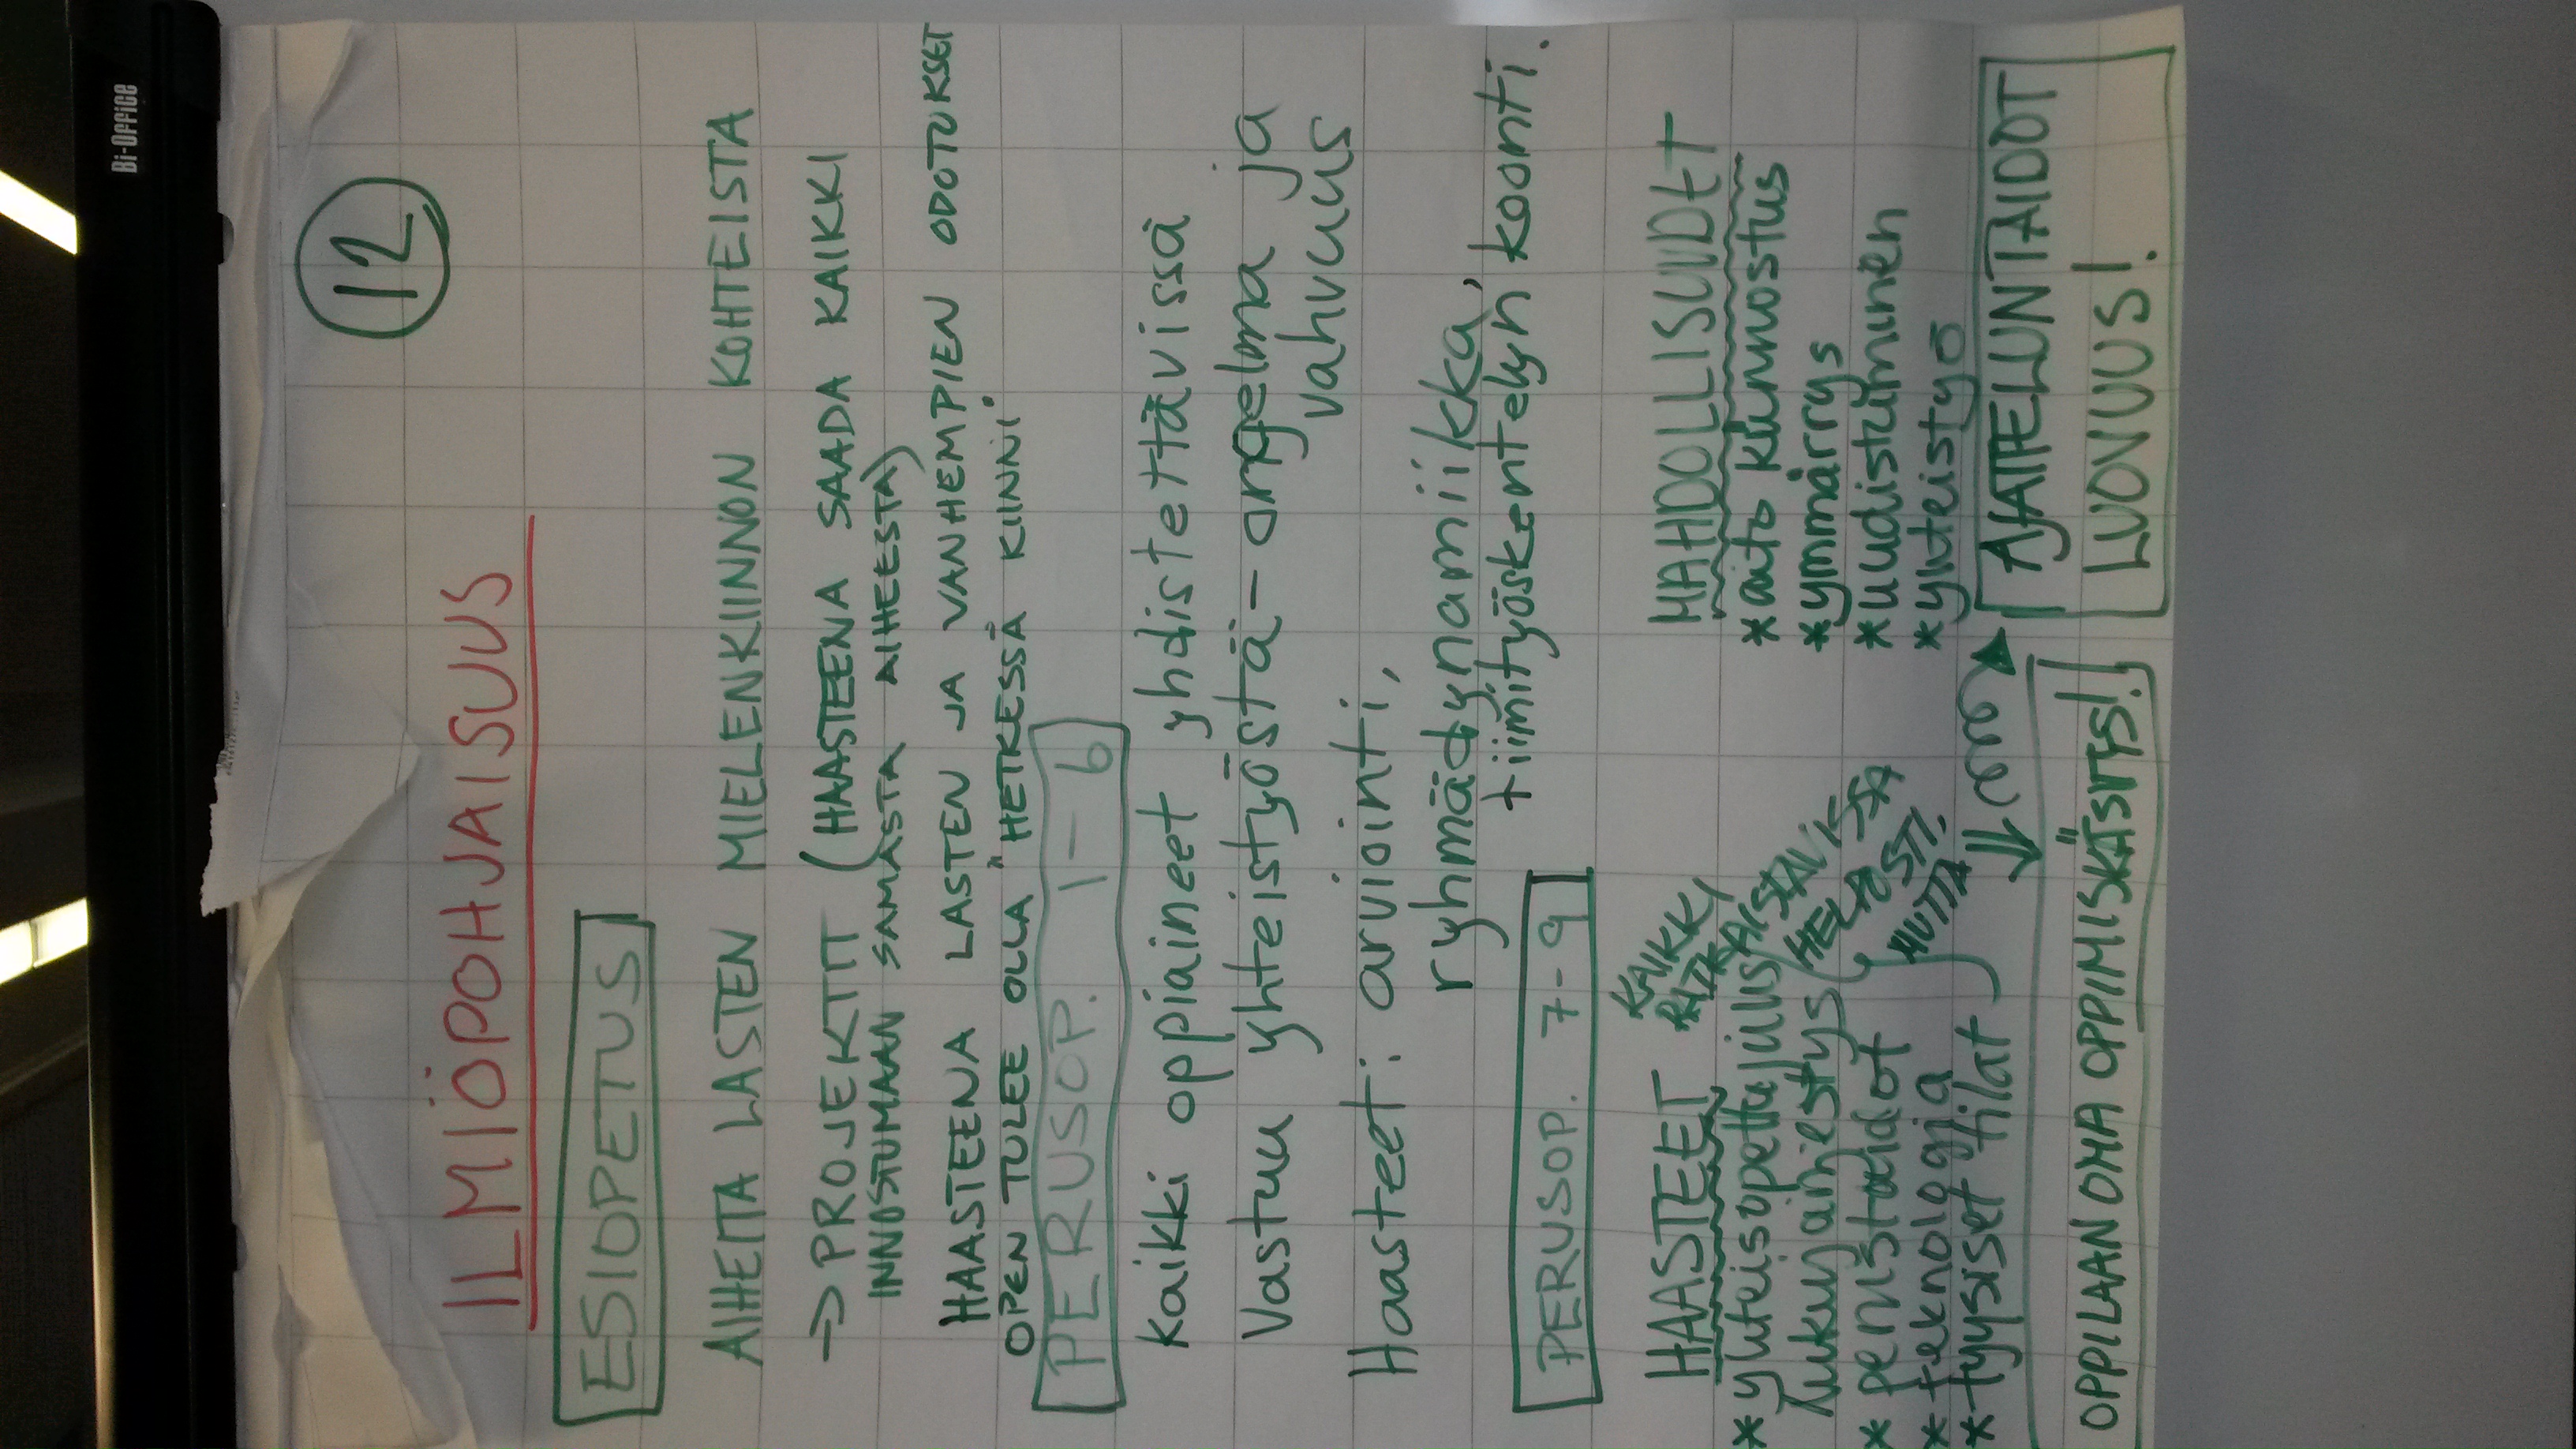 Bi-Office
12
ILMIÖPOHJAISUUS
ESIOPETUS
AIHEITA LASTEN MIELENKIINNON KOHTEISTA
=> PROJEKTIT (HAASTEENA SAADA KAIKKI
INNOSTUMAAN SAMASTA AIHEESTA)
HAASTEENA LASTEN JA VANHEMPIEN ODOTUKSET
OPEN TULEE OLLA "HETKESSÄ KIINNI"
PERUSOP. 1-6
Kaikki oppiaineet yhdistettävissä
Vastuu yhteistyöstä - ongelma ja
vahvuus
Haasteet: arviointi,
ryhmädynamiikka,
tiimityöskentelyn koonti.
PERUSOP. 7-9
HAASTEET
*yhteisopettajuus
lukujärjestys
*perustaidot
*teknologia
*fyysiset tilat
KAIKKI
RATKAISTAVISSA
HELPOSTI,
MUTTA
MAHDOLLISUUDET
*aito kiinnostus
*ymmärrys
*uudistuminen
*yhteistyö
OPPILAAN OMA OPPIMISKÄSITYS!
AJATTELUNTAIDOT
LUOVUUS!